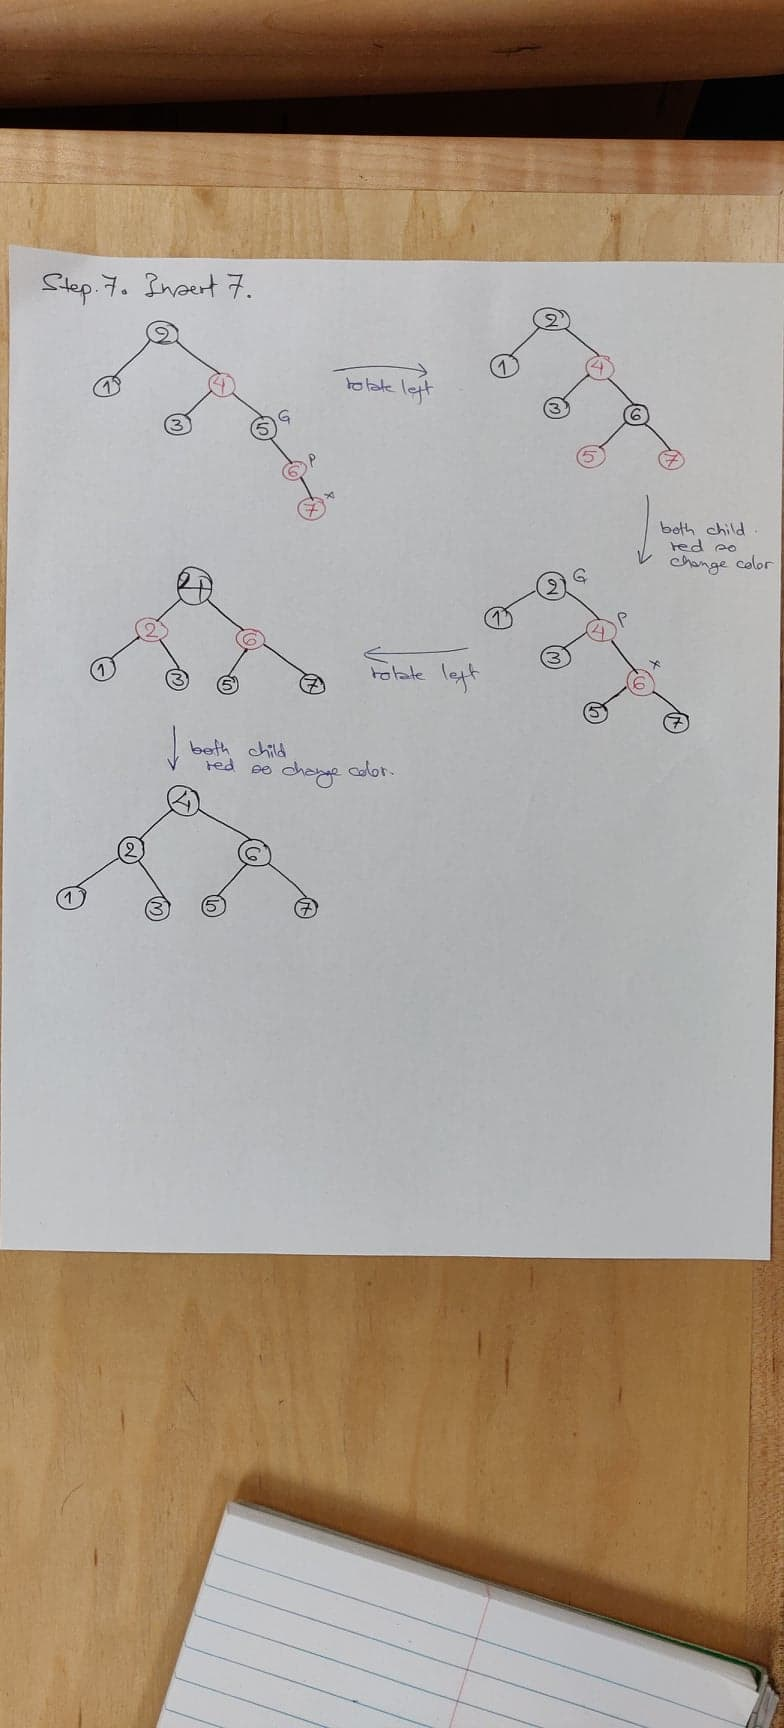 Step.7. Insert 7.
2
1 4
3 5 G
6 P
7 x
rotate left
2
1 4
3 6
5 7
both child
red so
change color
2 G
1 4 P
3 6 x
5 7
rotate left
4
2 6
1 3 5 7
both child
red so change color.
4
2 6
1 3 5 7